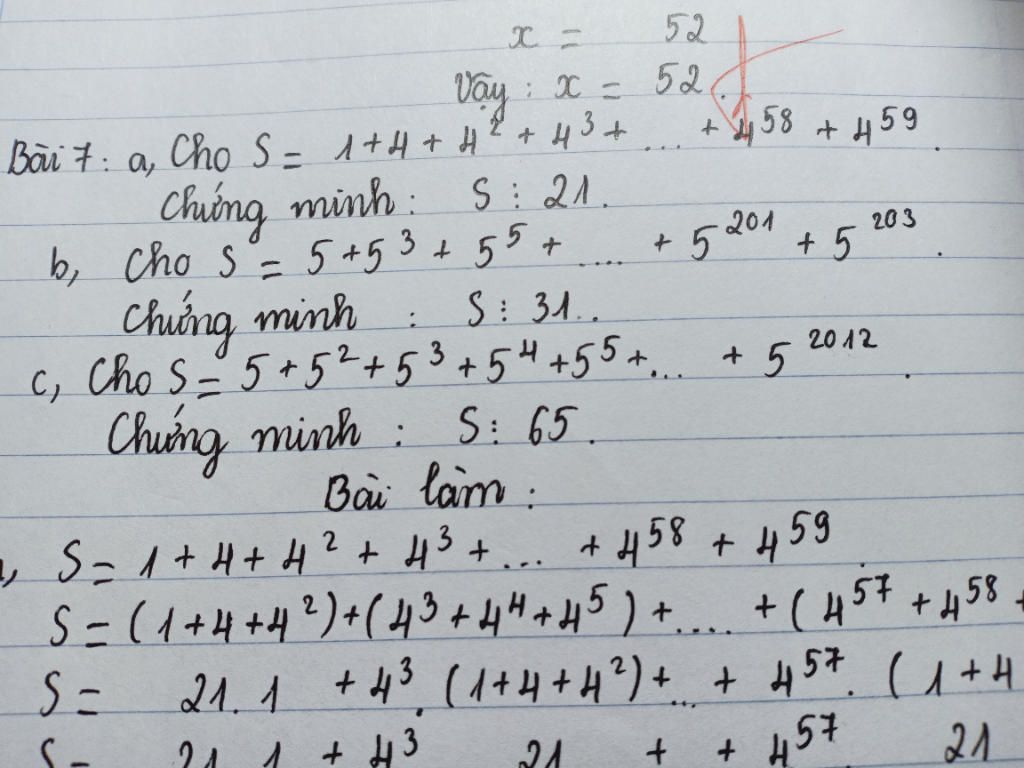 x = 52
Vậy : x = 52.
Bài 7 : a, Cho S = 1 + 4 + 4² + 4³ + ... + 4⁵⁸ + 4⁵⁹.
Chứng minh : S ⋮ 21.
b, Cho S = 5 + 5³ + 5⁵ + .... + 5²⁰¹ + 5²⁰³.
Chứng minh : S ⋮ 31..
c, Cho S = 5 + 5² + 5³ + 5⁴ + 5⁵ + ... + 5²⁰¹².
Chứng minh : S ⋮ 65.
Bài làm :
, S = 1 + 4 + 4² + 4³ + ... + 4⁵⁸ + 4⁵⁹.
S = (1 + 4 + 4²) + (4³ + 4⁴ + 4⁵) + .... + (4⁵⁷ + 4⁵⁸ +
S = 21. 1 + 4³. (1 + 4 + 4²) + ... + 4⁵⁷. (1 + 4
S = 21 1 + 4³ 21 + + 4⁵⁷ 21